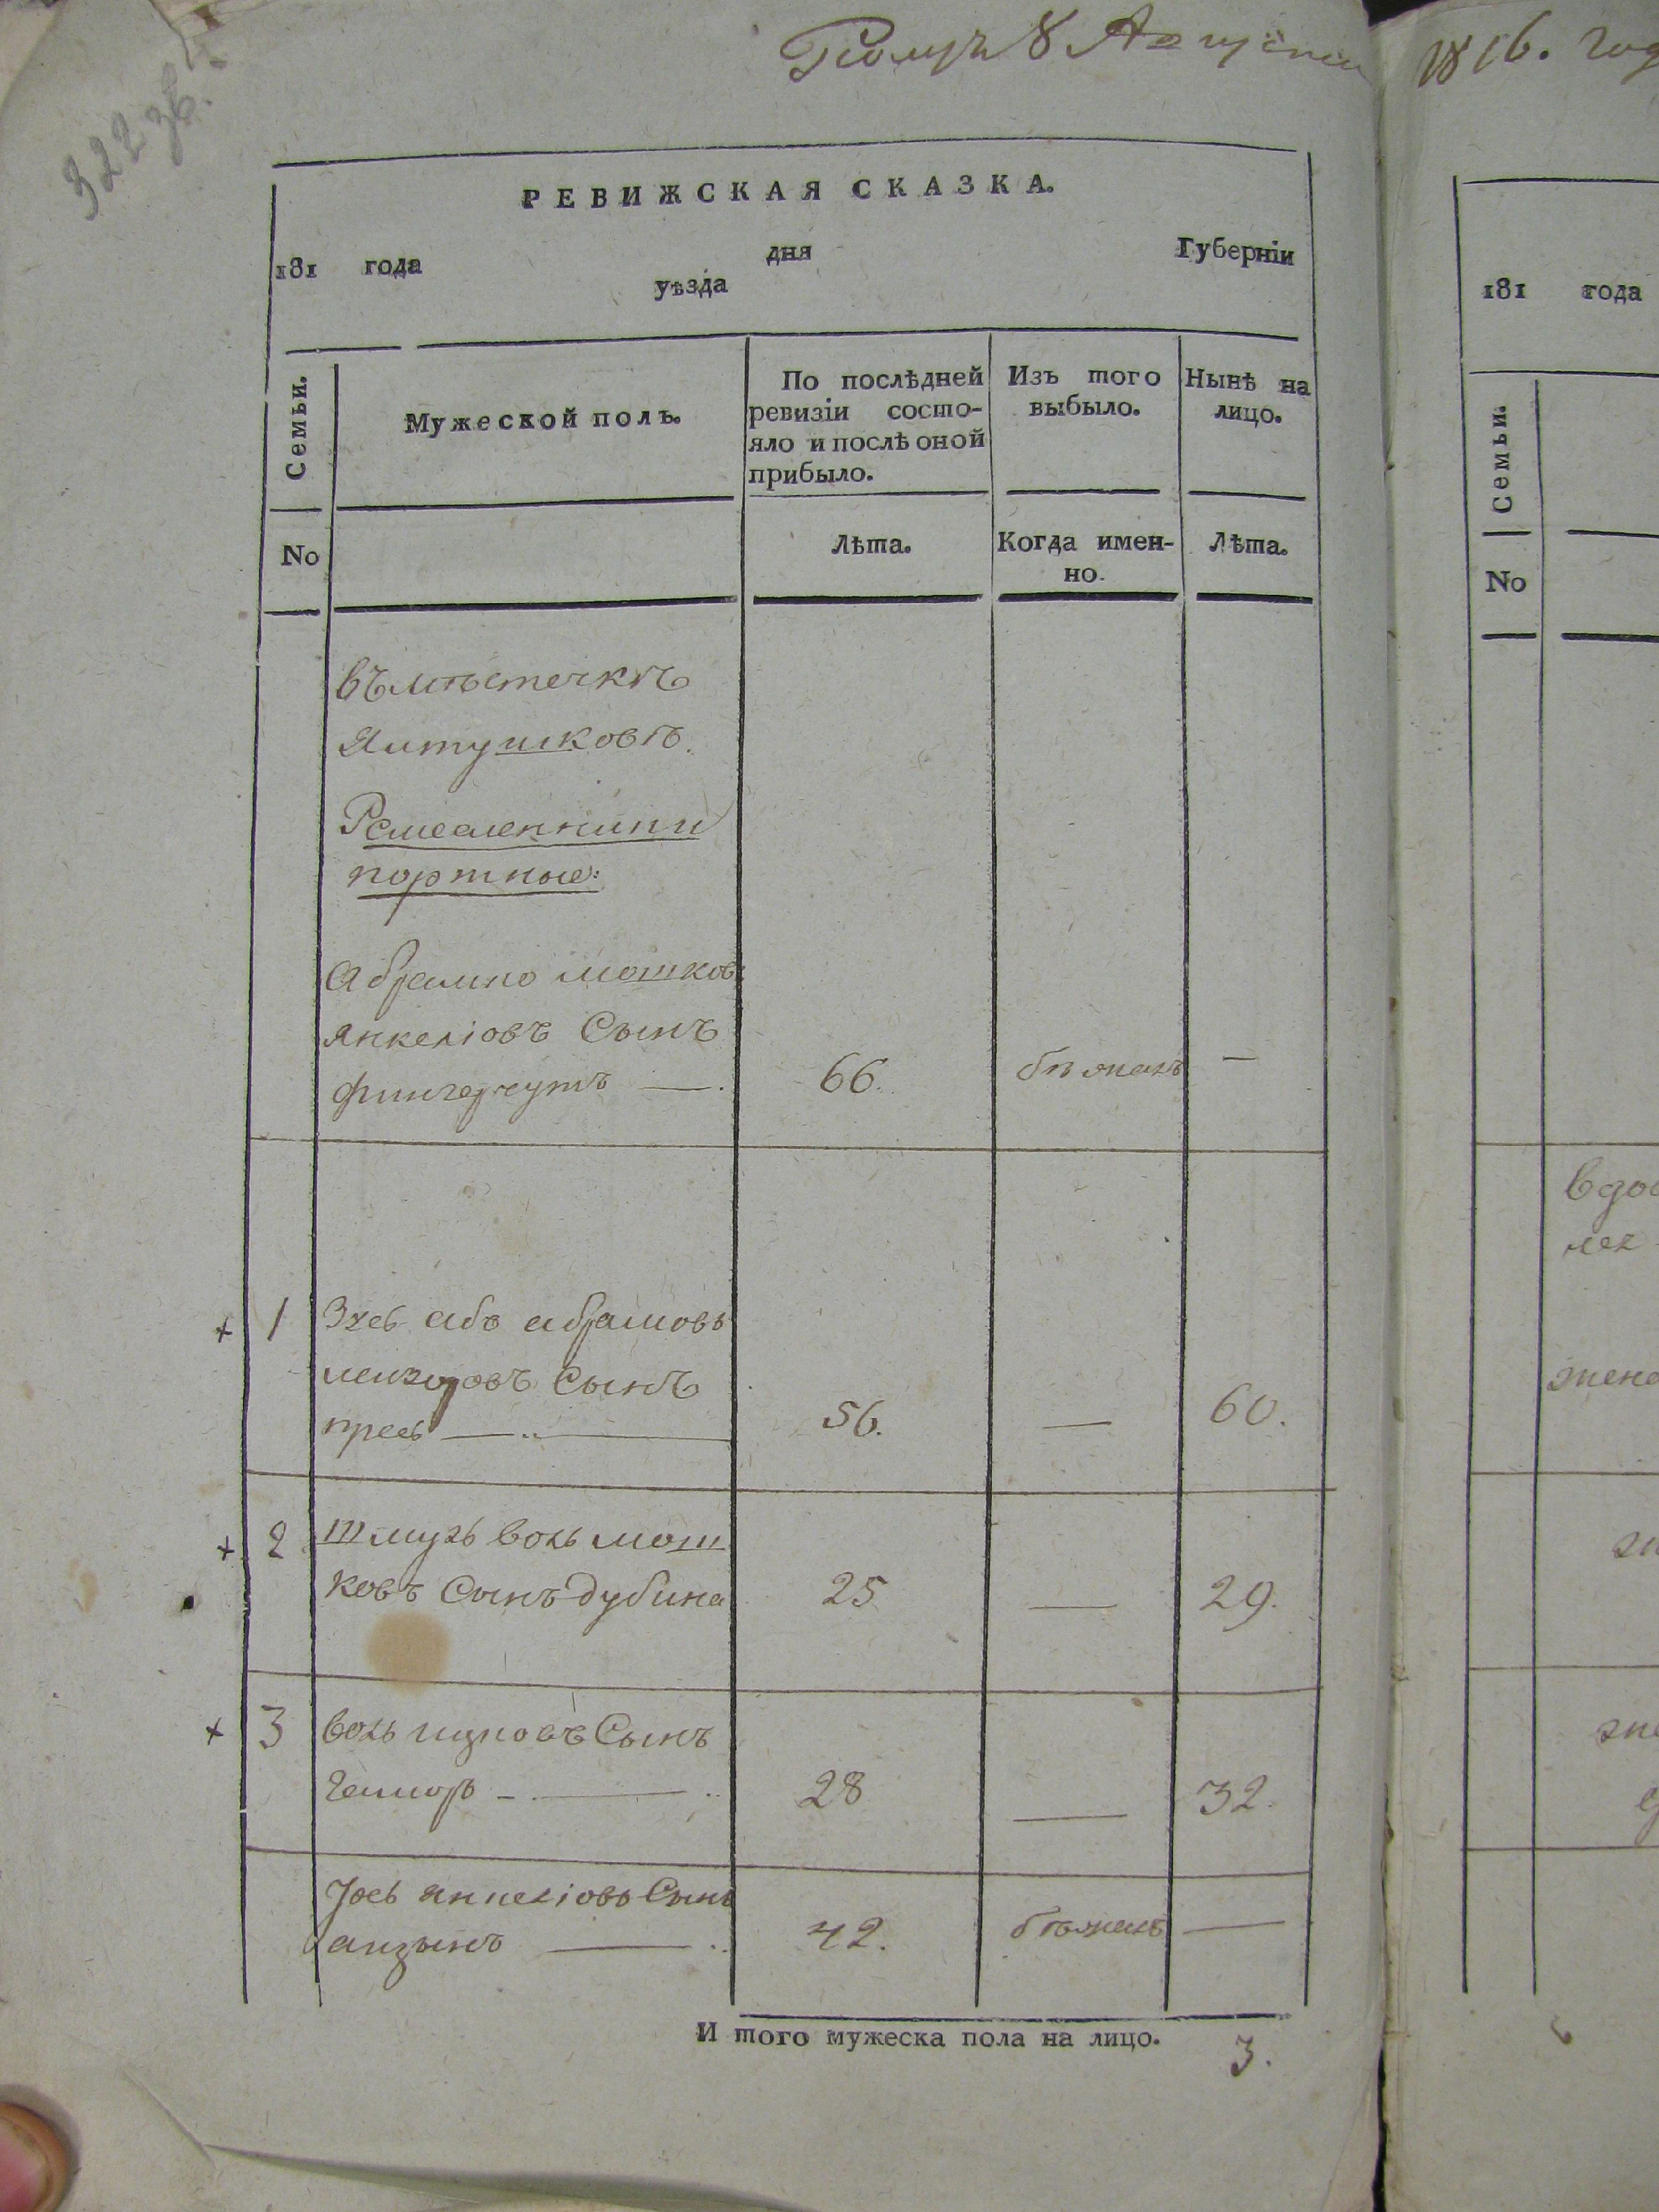 322 зв.
8 Августа
1816. год
РЕВИЖСКАЯ СКАЗКА.
181 года дня Губерніи
уѣзда
Семьи.
Мужеской полъ.
По послѣдней
ревизіи состо-
яло и послѣ оной
прибыло.
Изъ того
выбыло.
Нынѣ на
лицо.
No
Лѣта.
Когда имен-
но.
Лѣта.
въ мѣстечкѣ
Ялтушковѣ.
Ремесленники
портные:
Абрамко мошков
янкеліовъ Сынъ
фингергутъ —. 66. бѣжалъ —
1 абъ абрамовъ
Сынъ
56. — 60.
2 Шмуль воль мош
ковъ Сынъ дубина 25 — 29.
3 воль ицковъ Сынъ
28 — 32.
Іось янкеліовъ Сынъ
42. бѣжалъ —
И того мужеска пола на лицо. 3.
181 года
Семьи.
No
жена